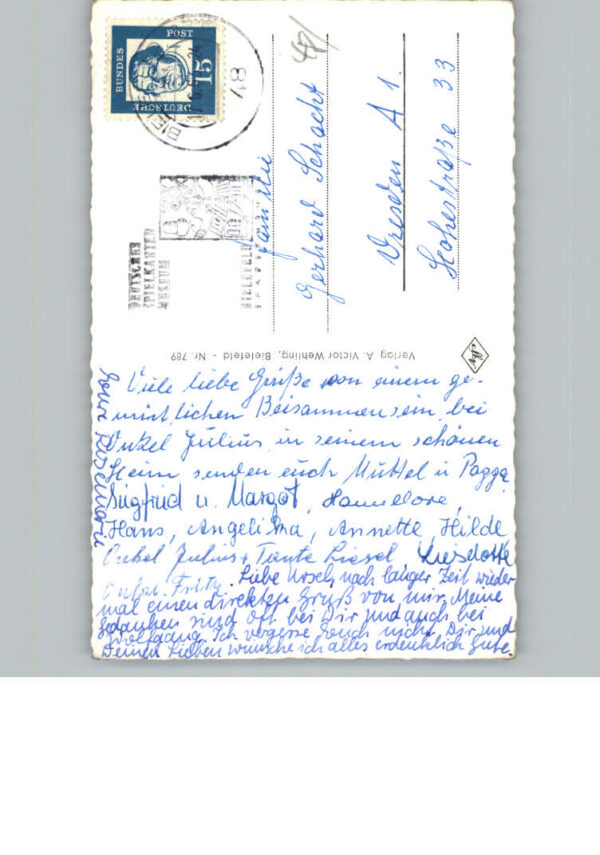 DEUTSCHE
BUNDES
POST
15
48
DEUTSCHES
SPIELKARTEN
MUSEUM
BIELEFELD
Familie
Gerhard Schacht
Dresden A 1.
Hohestraße 33
Verlag A. Victor Wehling, Bielefeld - Nr. 789
Viele liebe Grüße von einem ge-
mütlichen Beisammensein bei
Onkel Julius in seinem schönen
Heim senden euch Muttel u Pappa
Siegfried u. Margot, Hannelore,
Hans, Angelika, Annette, Hilde,
Onkel Julius + Tante Liesel Lieselotte
Onkel Fritz. Liebe Ursel, nach langer Zeit wieder
mal einen direkten Gruß von mir. Meine
Gedanken sind oft bei Dir und auch bei
Wolfgang. Ich vergesse Euch nicht. Dir und
Deinen Lieben wünsche ich alles erdenklich Gute.